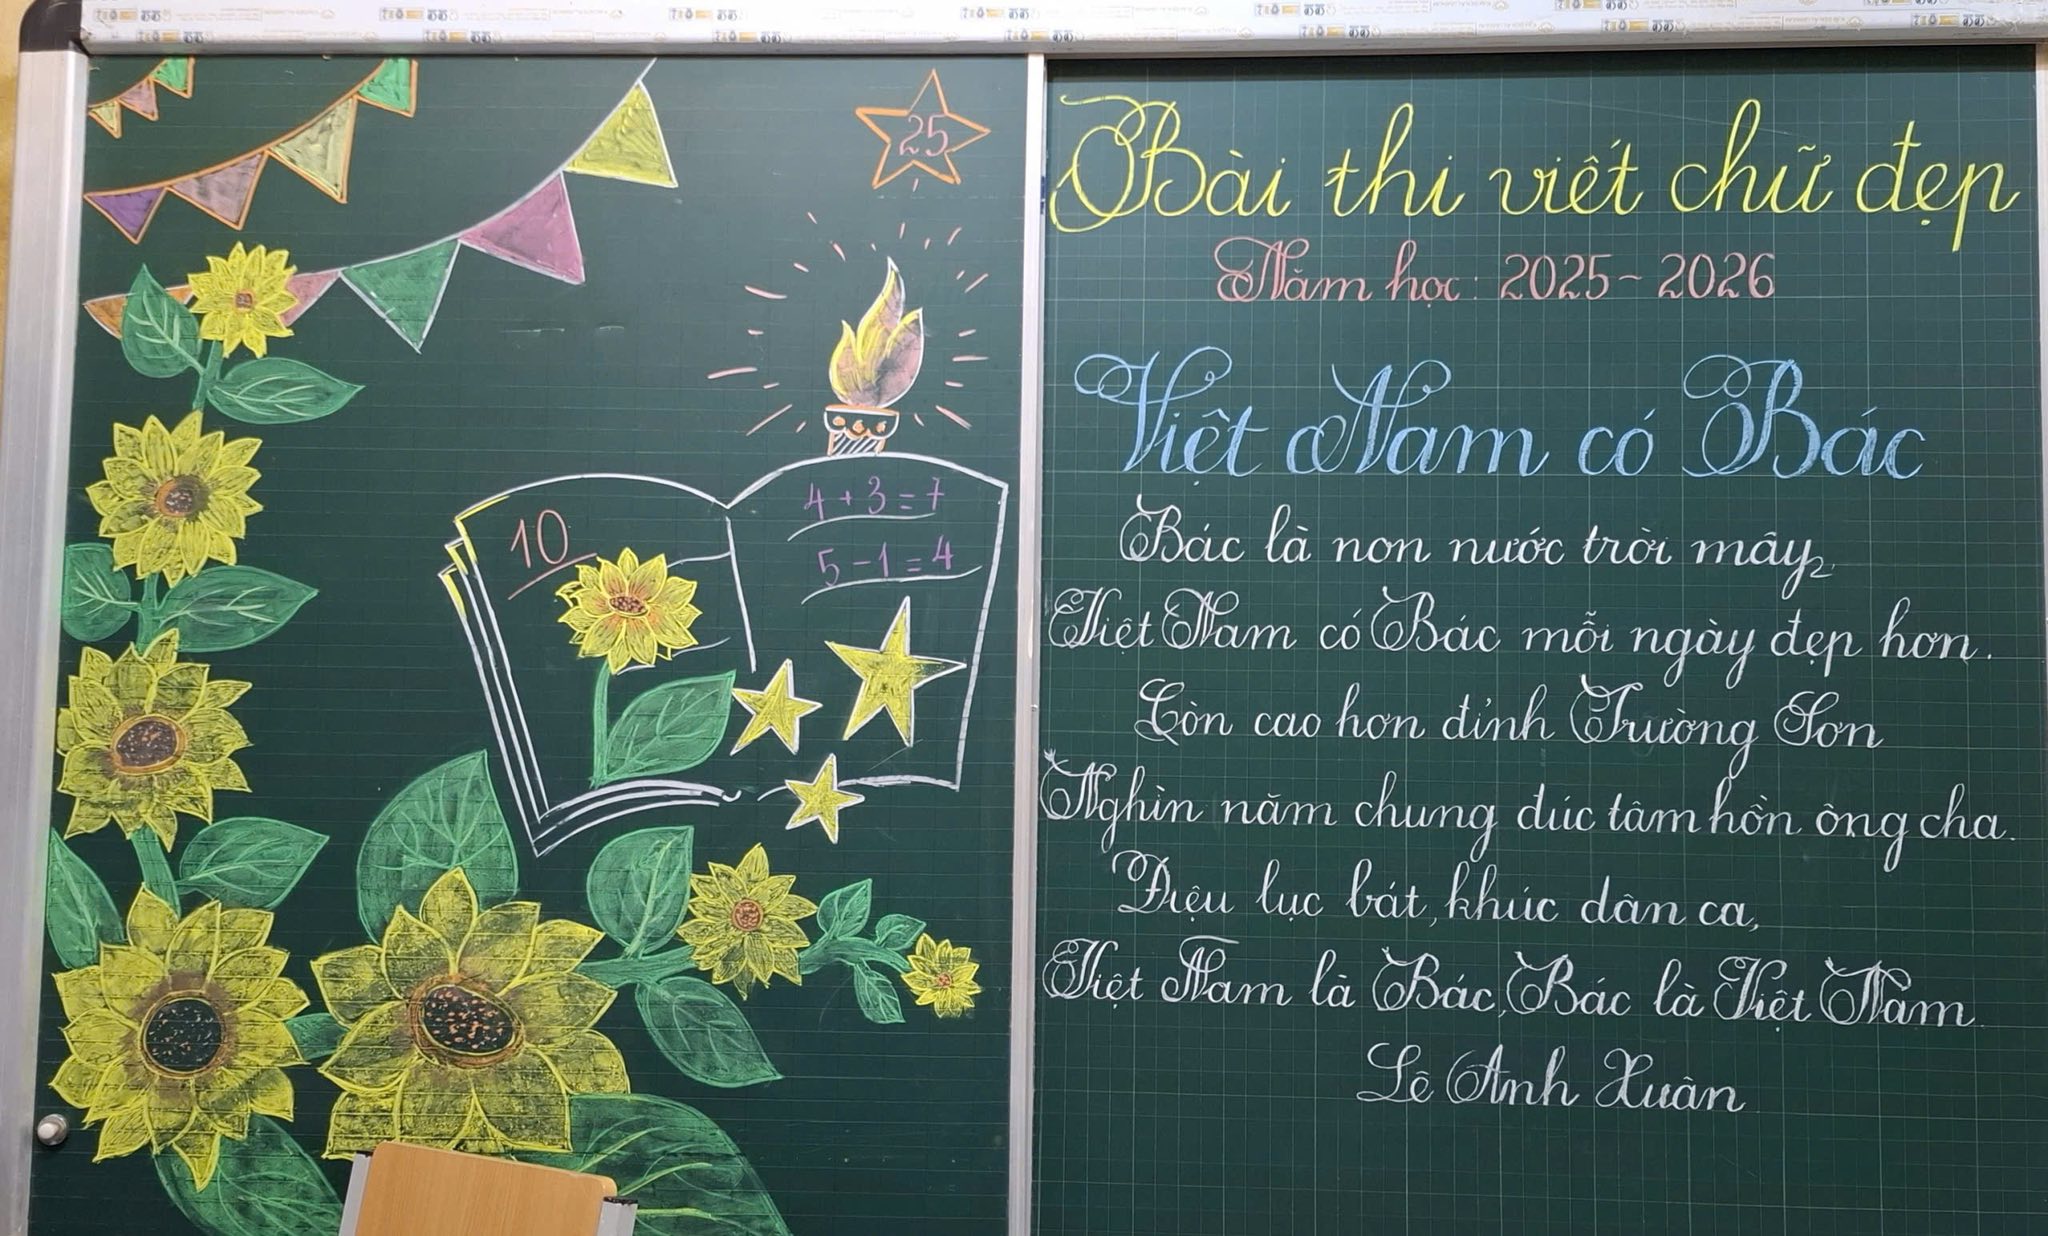 25
10
4 + 3 = 7
5 - 1 = 4
Bài thi viết chữ đẹp
Năm học: 2025 - 2026
Việt Nam có Bác
Bác là non nước trời mây,
Việt Nam có Bác mỗi ngày đẹp hơn.
Còn cao hơn đỉnh Trường Sơn
Nghìn năm chung đúc tâm hồn ông cha.
Điệu lục bát, khúc dân ca,
Việt Nam là Bác, Bác là Việt Nam.
Lê Anh Xuân